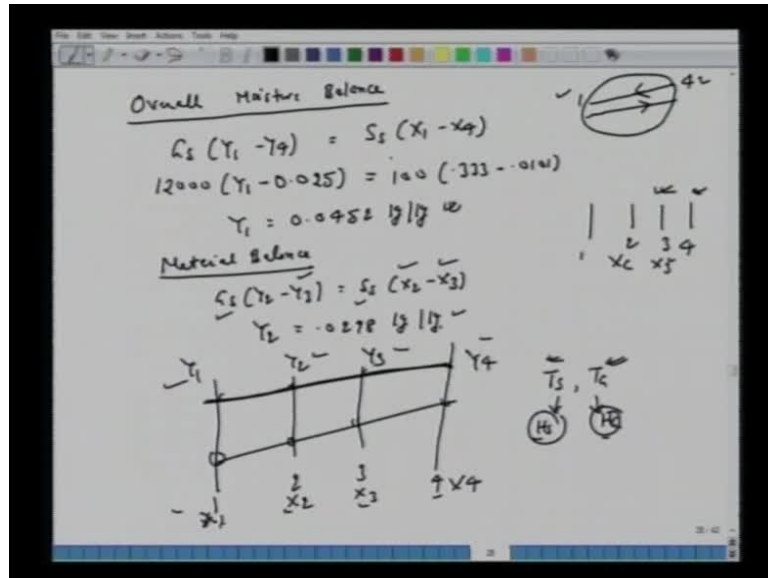 File Edit View Insert Actions Tools Help
Overall Moisture Balance
Gs (Y1 - Y4) = Ss (X1 - X4)
12000 (Y1 - 0.025) = 100 (.333 - .0101)
Y1 = 0.0452 kg/kg
Material Balance
Gs (Y2 - Y3) = Ss (X2 - X3)
Y2 = .0278 kg/kg
1
2 3 4
Y1 Y2 Y3 Y4
Ts, TG
Hs
1 2 3 4 X4
X1 X2 X3